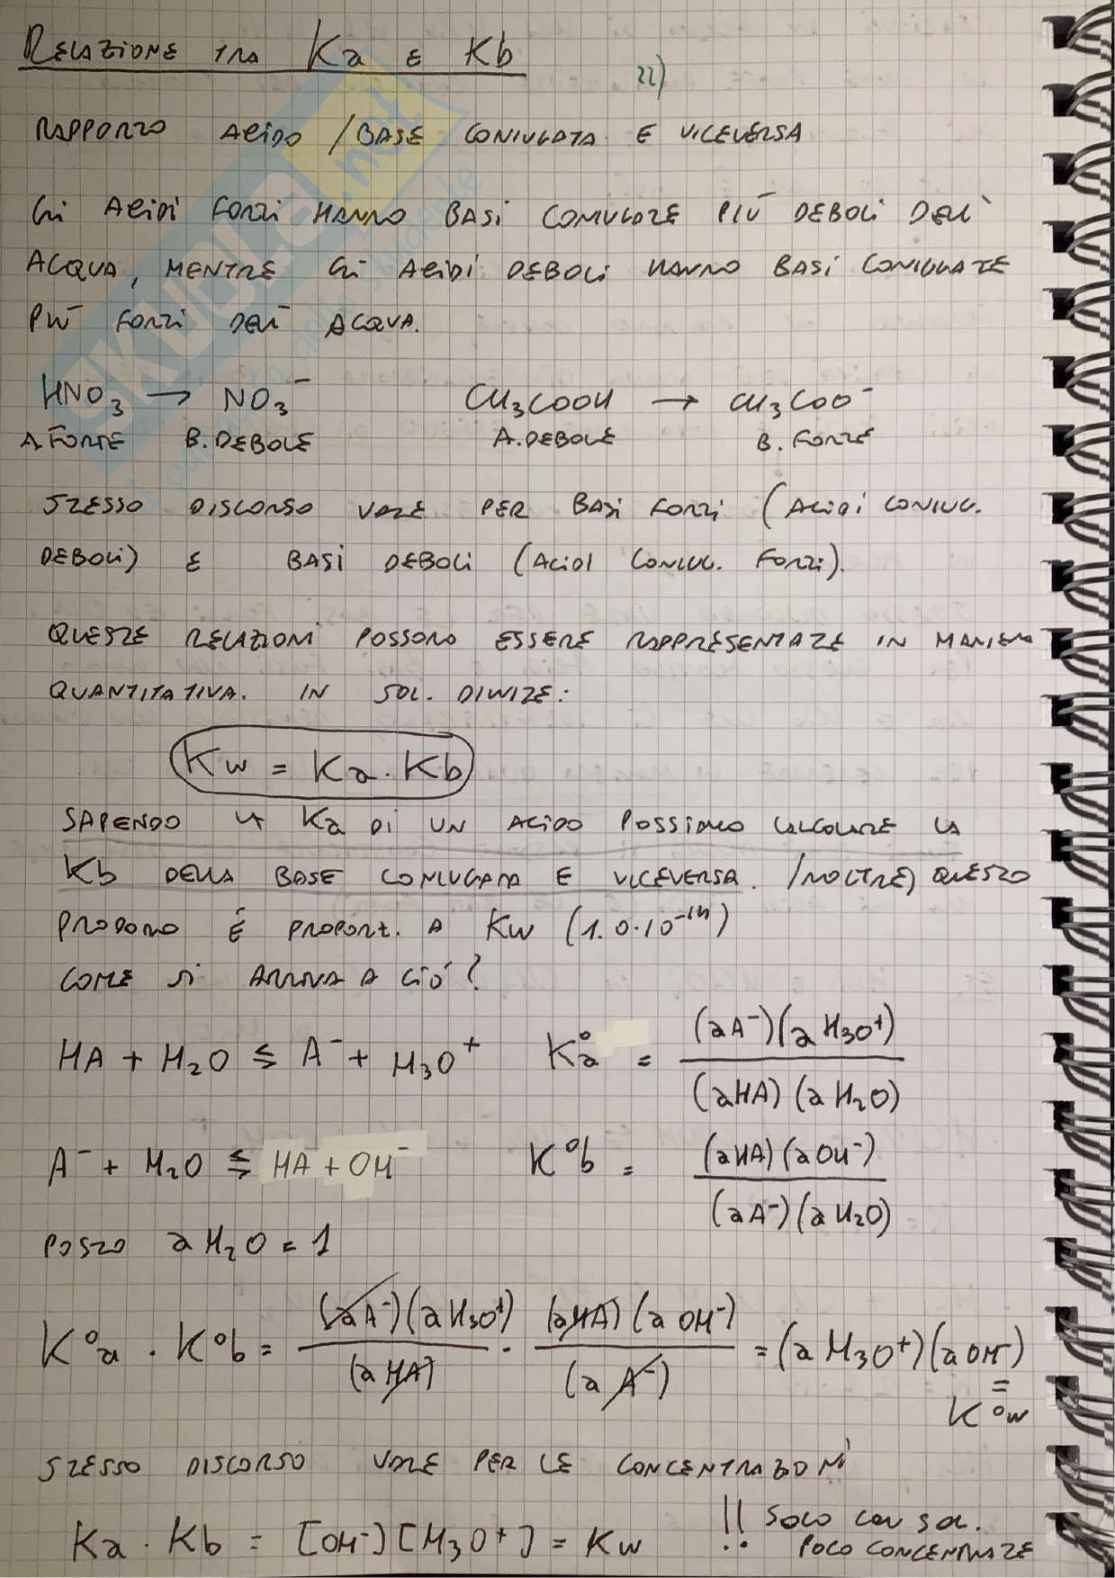 RELAZIONE TRA Ka E Kb
22)
RAPPORTO ACIDO / BASE CONIUGATA E VICEVERSA
GLI ACIDI FORTI HANNO BASI CONIUGATE PIÙ DEBOLI DELL'
ACQUA, MENTRE GLI ACIDI DEBOLI HANNO BASI CONIUGATE
PIÙ FORTI DELL' ACQUA.
HNO₃ → NO₃⁻ CH₃COOH → CH₃COO⁻
A. FORTE B. DEBOLE A. DEBOLE B. FORTE
STESSO DISCORSO VALE PER BASI FORTI (ACIDI CONIUG.
DEBOLI) E BASI DEBOLI (ACIDI CONIUG. FORTI).
QUESTE RELAZIONI POSSONO ESSERE RAPPRESENTATE IN MANIERA
QUANTITATIVA. IN SOL. DILUITE:
Kw = Ka · Kb
SAPENDO LA Ka DI UN ACIDO POSSIAMO CALCOLARE LA
Kb DELLA BASE CONIUGATA E VICEVERSA. INOLTRE, QUESTO
PRODOTTO É PROPORZ. A Kw (1.0·10⁻¹⁴)
COME SI ARRIVA A CIÓ?
HA + H₂O ⇆ A⁻ + H₃O⁺ K°a = (aA⁻)(aH₃O⁺) / (aHA)(aH₂O)
A⁻ + H₂O ⇆ HA + OH⁻ K°b = (aHA)(aOH⁻) / (aA⁻)(aH₂O)
POSTO aH₂O = 1
K°a · K°b = (aA⁻)(aH₃O⁺) / (aHA) · (aHA)(aOH⁻) / (aA⁻) = (aH₃O⁺)(aOH⁻)
=
K°w
STESSO DISCORSO VALE PER LE CONCENTRAZIONI
Ka · Kb = [OH⁻][H₃O⁺] = Kw !! SOLO CON SOL.
POCO CONCENTRATE